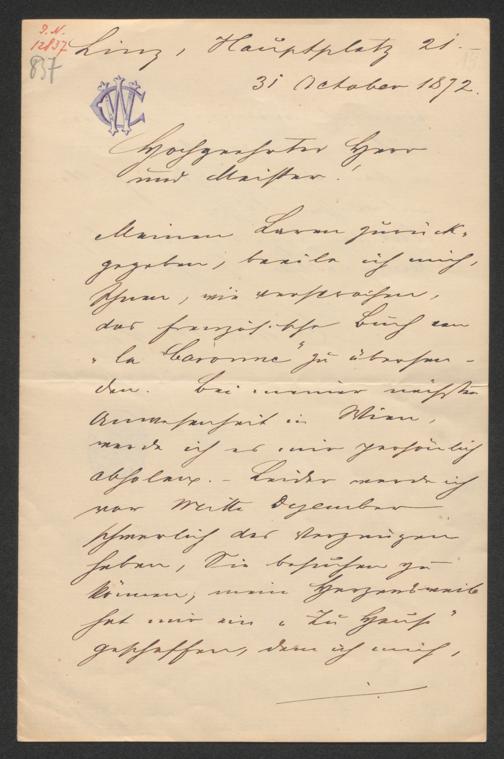 I. N.
12837
837
Linz, Hauptplatz 21.
31 October 1872.
Hochgeehrter Herr
und Meister!
Meinen Laren zurück-
gegeben, beeile ich mich,
Ihnen, wie versprochen,
das französische Buch von
"la Caronne" zu übersen-
den. Bei meiner nächsten
Anwesenheit in Wien,
werde ich es mir persönlich
abholen. - Leider werde ich
vor Mitte Dezember
schwerlich das Vergnügen
haben, Sie besuchen zu
können; mein Herzensweib
hat mir ein "Zu Haus"
geschaffen, dem ich mich,